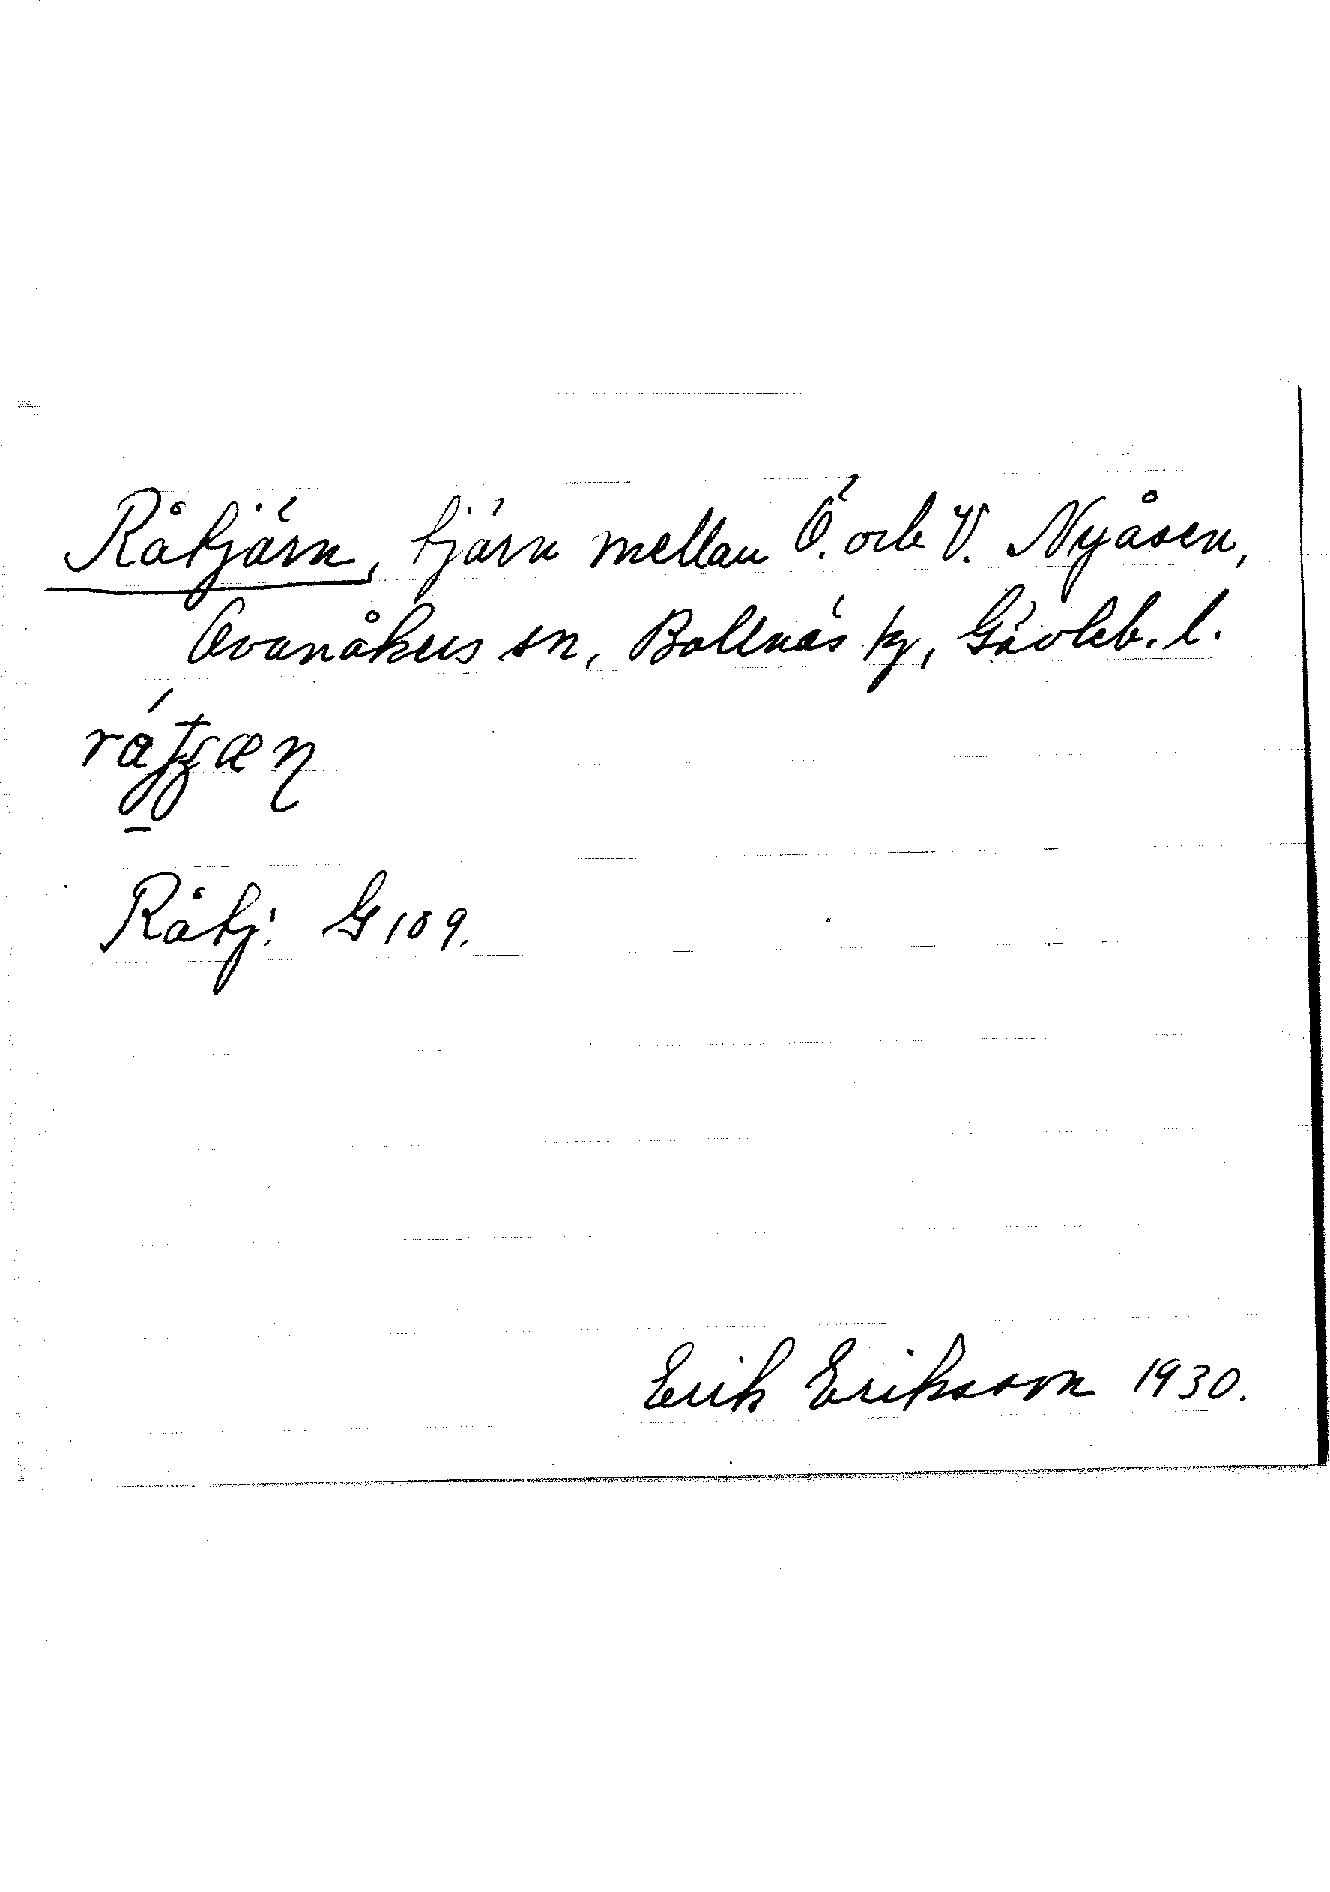 Råtjärn, tjärn mellan Ö. och V. Nyåsen,
Ovanåkers sn, Bollnäs tg, Gävleb. l.
Råtj. G 109.
Erik Eriksson 1930.